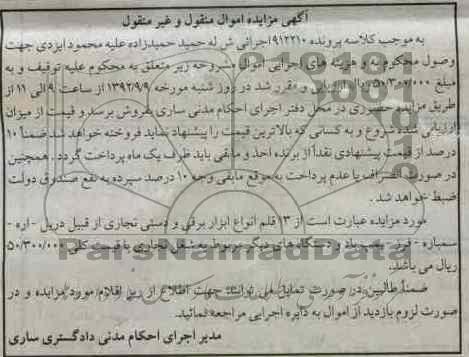 آگهی مزایده اموال منقول و غیر منقول
به موجب کلاسه پرونده ۹۱۲۲۱۰ اجرائی ش له حمید حمیدزاده علیه محمود ایزدی جهت
وصول محکوم به و هزینه های اجرایی اموال مشروحه زیر متعلق به محکوم علیه توقیف و به
مبلغ ۵۰/۳۰۰/۰۰۰ ریال ارزیابی و مقرر شد در روز شنبه مورخه ۱۳۹۲/۹/۹ از ساعت ۹ الی ۱۱ از
طریق مزایده حضوری در محل دفتر اجرای احکام مدنی ساری بفروش برسد و قیمت از میزان
ارزیابی شده شروع و به کسانی که بالاترین قیمت را پیشنهاد نماید فروخته خواهد شد ضمناً ۱۰
درصد از قیمت پیشنهادی نقداً از برنده اخذ و مابقی باید ظرف یک ماه پرداخت گردد. همچنین
در صورت انصراف یا عدم پرداخت به موقع مابقی وجه ۱۰ درصد سپرده به نفع صندوق دولت
ضبط خواهد شد.
مورد مزایده عبارت است از ۱۳ قلم انواع ابزار برقی و دستی تجاری از قبیل دریل - اره -
سمباره - فرز - پمپ باد و دستگاه های دیگر مربوط به شغل نجاری با قیمت کلی ۵۰/۳۰۰/۰۰۰
ریال می باشد.
ضمناً طالبین در صورت تمایل می توانند جهت اطلاع از ریز اقلام مورد مزایده و در
صورت لزوم بازدید از اموال به دایره اجرایی مراجعه نمائید.
مدیر اجرای احکام مدنی دادگستری ساری
ParsNamadData